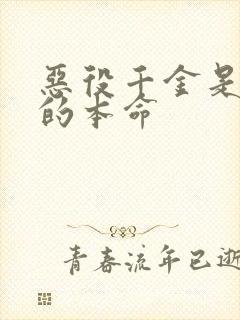 惡役千金是
的本命
青春流年已逝